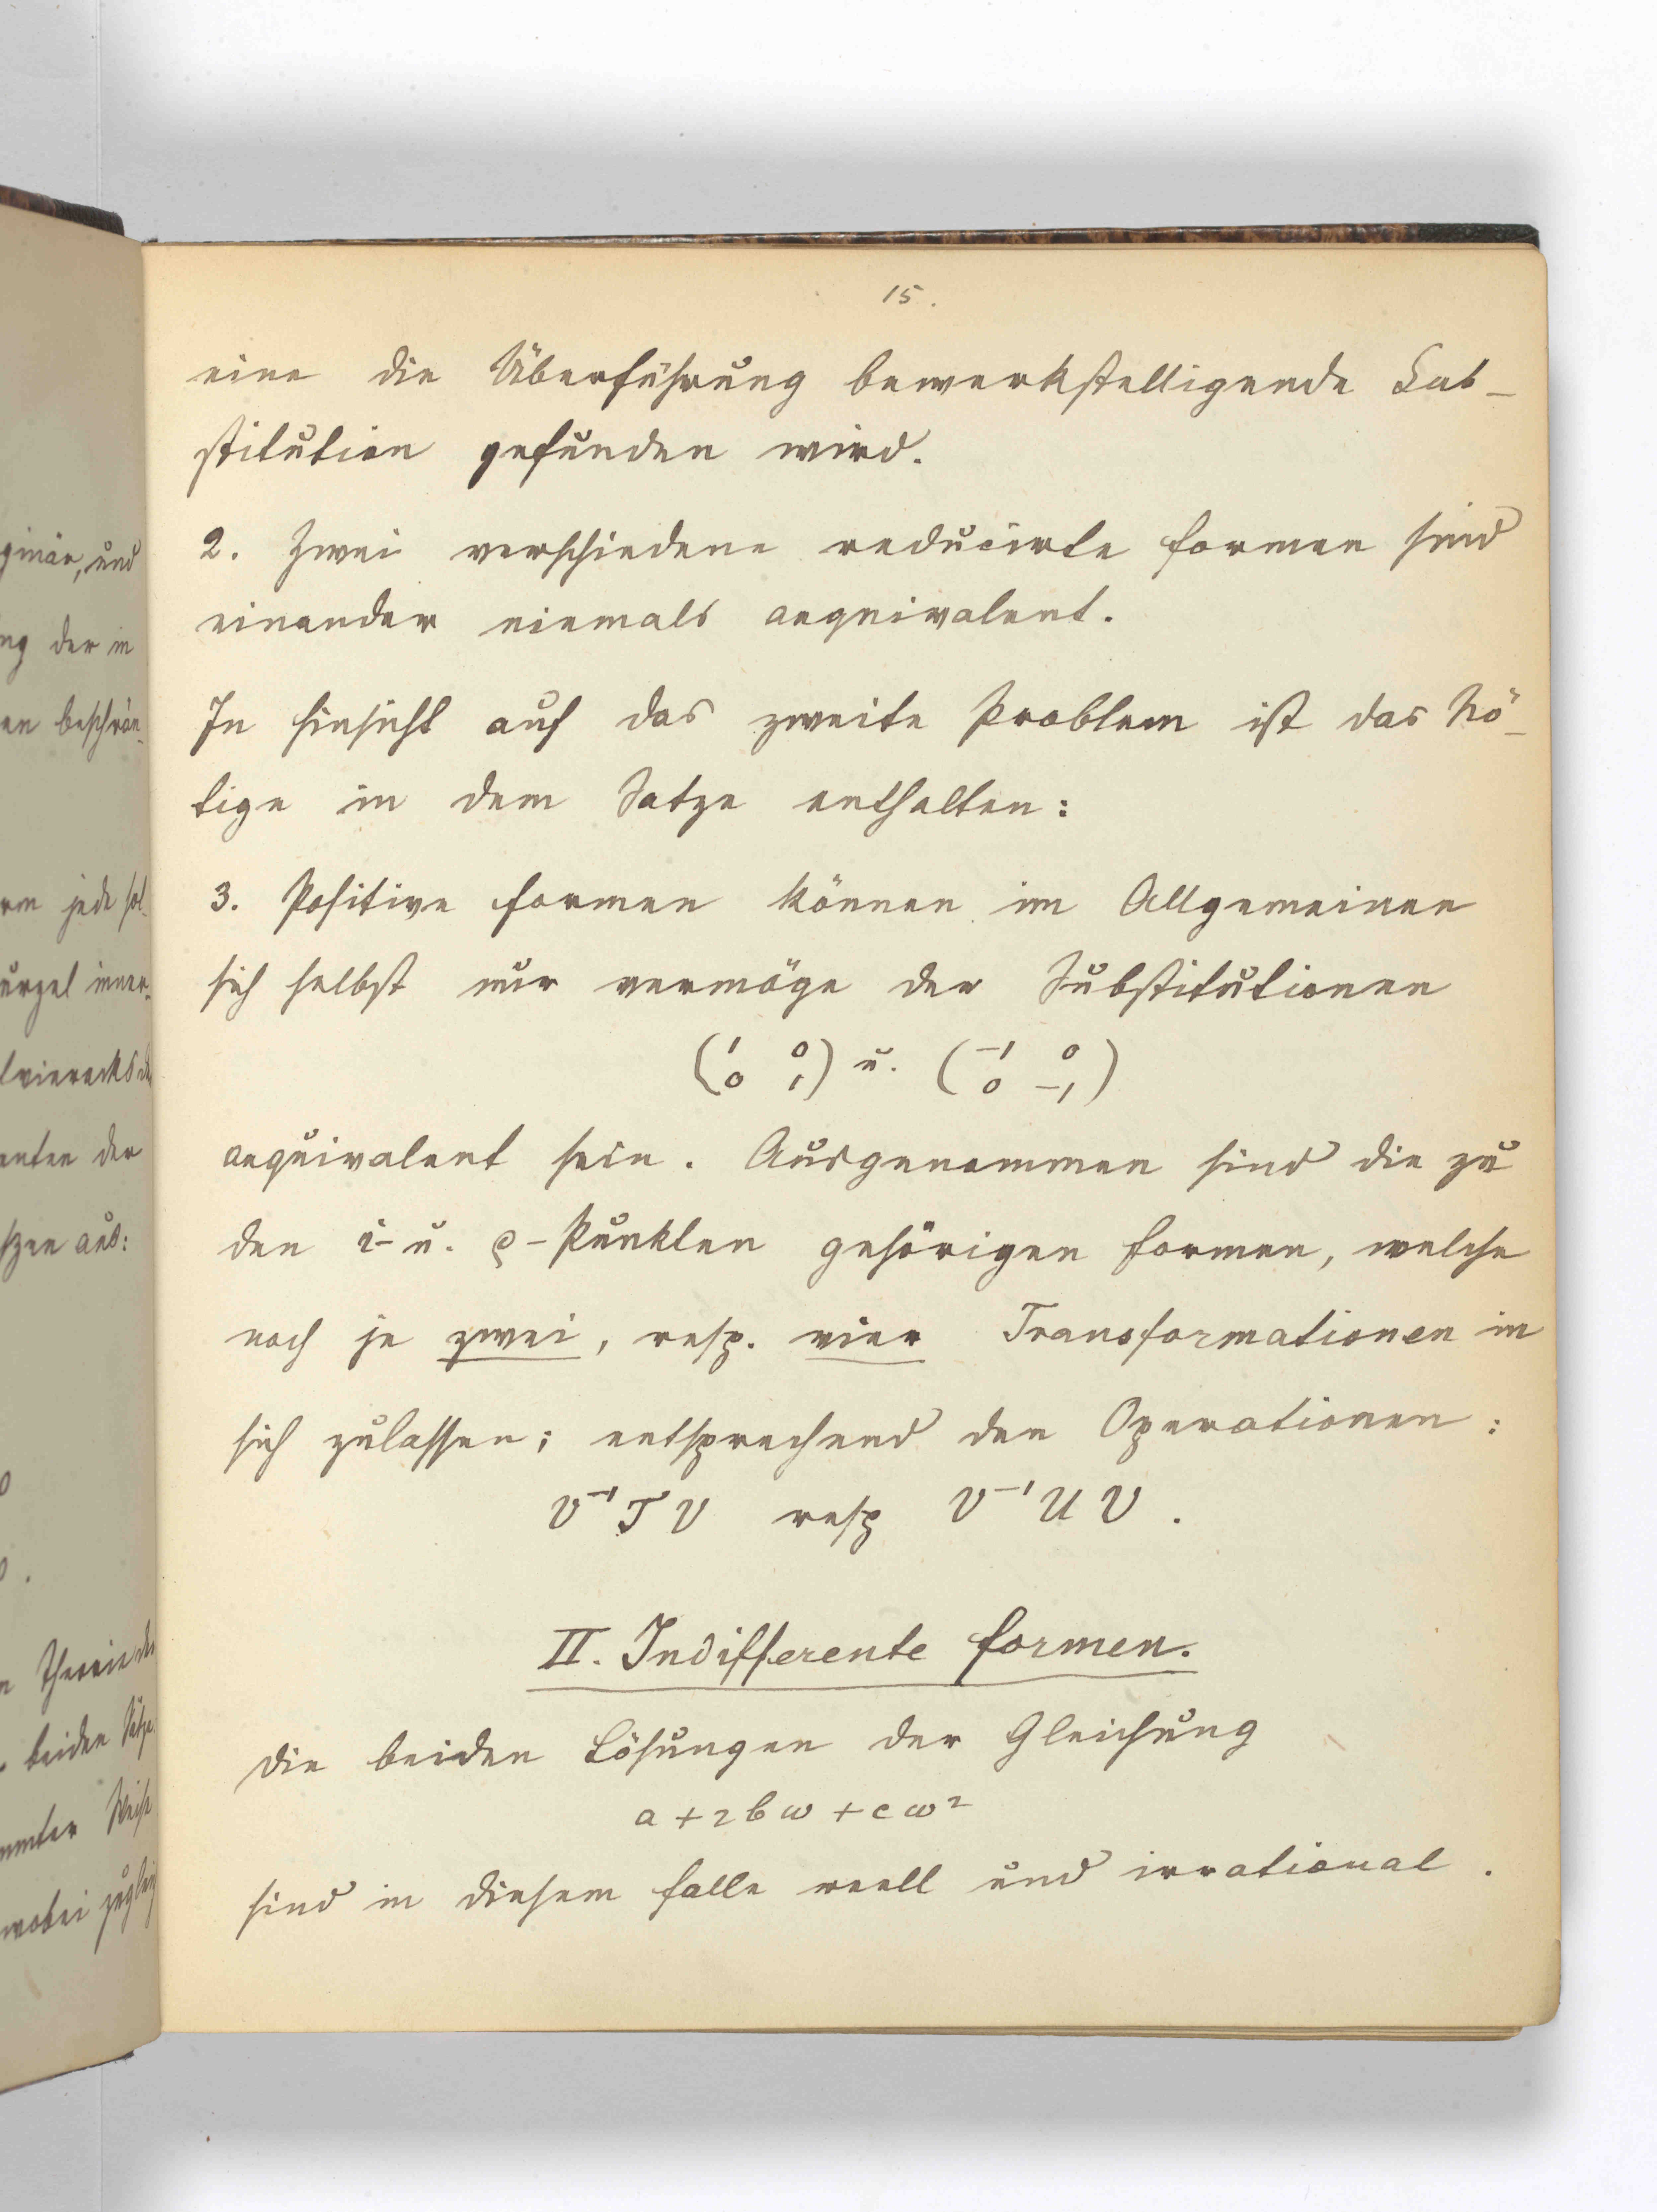 15.
eine die Überführung bewerkstelligende Sub-
stitution gefunden wird.
2. Zwei verschiedene reducirte Formen sind
einander niemals aequivalent.
In Hinsicht auf das zweite Problem ist das Nö-
tige in dem Satze enthalten:
3. Positive Formen können im Allgemeinen
sich selbst nur vermöge der Substitutionen
(1 0
0 1) u. (-1 0
0 -1)
aequivalent sein. Ausgenommen sind die zu
den i- u. ϱ-Punkten gehörigen Formen, welche
noch je zwei, resp. vier Transformationen in
sich zulassen; entsprechend den Operationen:
V⁻¹TV resp V⁻¹UV.
II. Indifferente Formen.
Die beiden Lösungen der Gleichung
a+2bω+cω²
sind in diesem Falle reell und irrational.
ginär, und
ng der in
en beschrän-
rm jede sol-
urzel inner-
anten der
tzen aus:
beiden Sätze